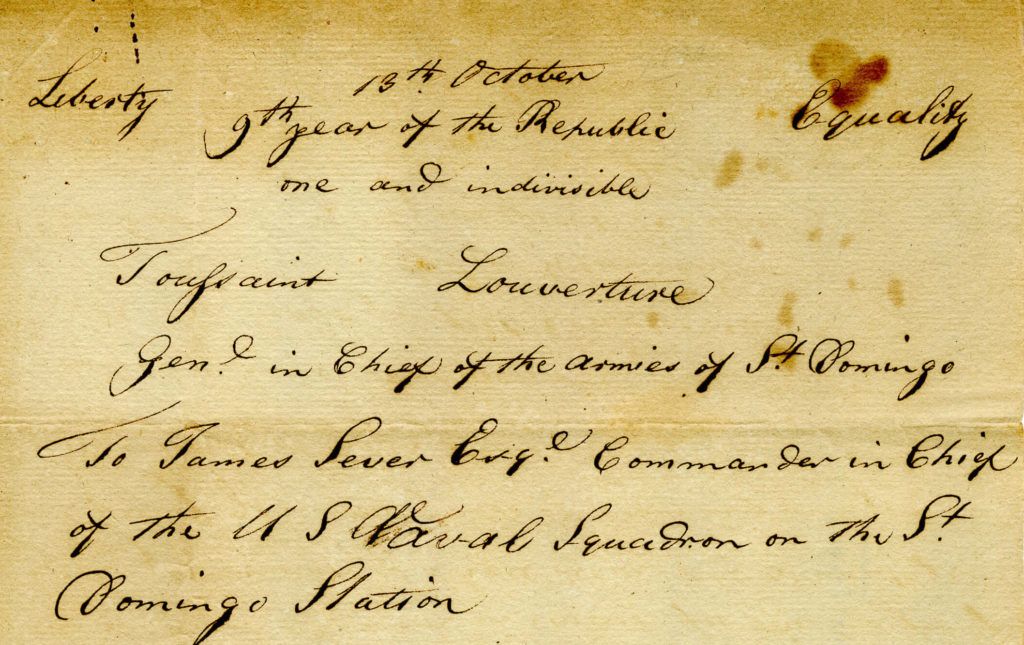 Liberty 13th October Equality
9th year of the Republic
one and indivisible
Toussaint Louverture
Genl. in Chief of the armies of St. Domingo
To James Sever Esqe. Commander in Chief
of the U S Naval Squadron on the St.
Domingo Station